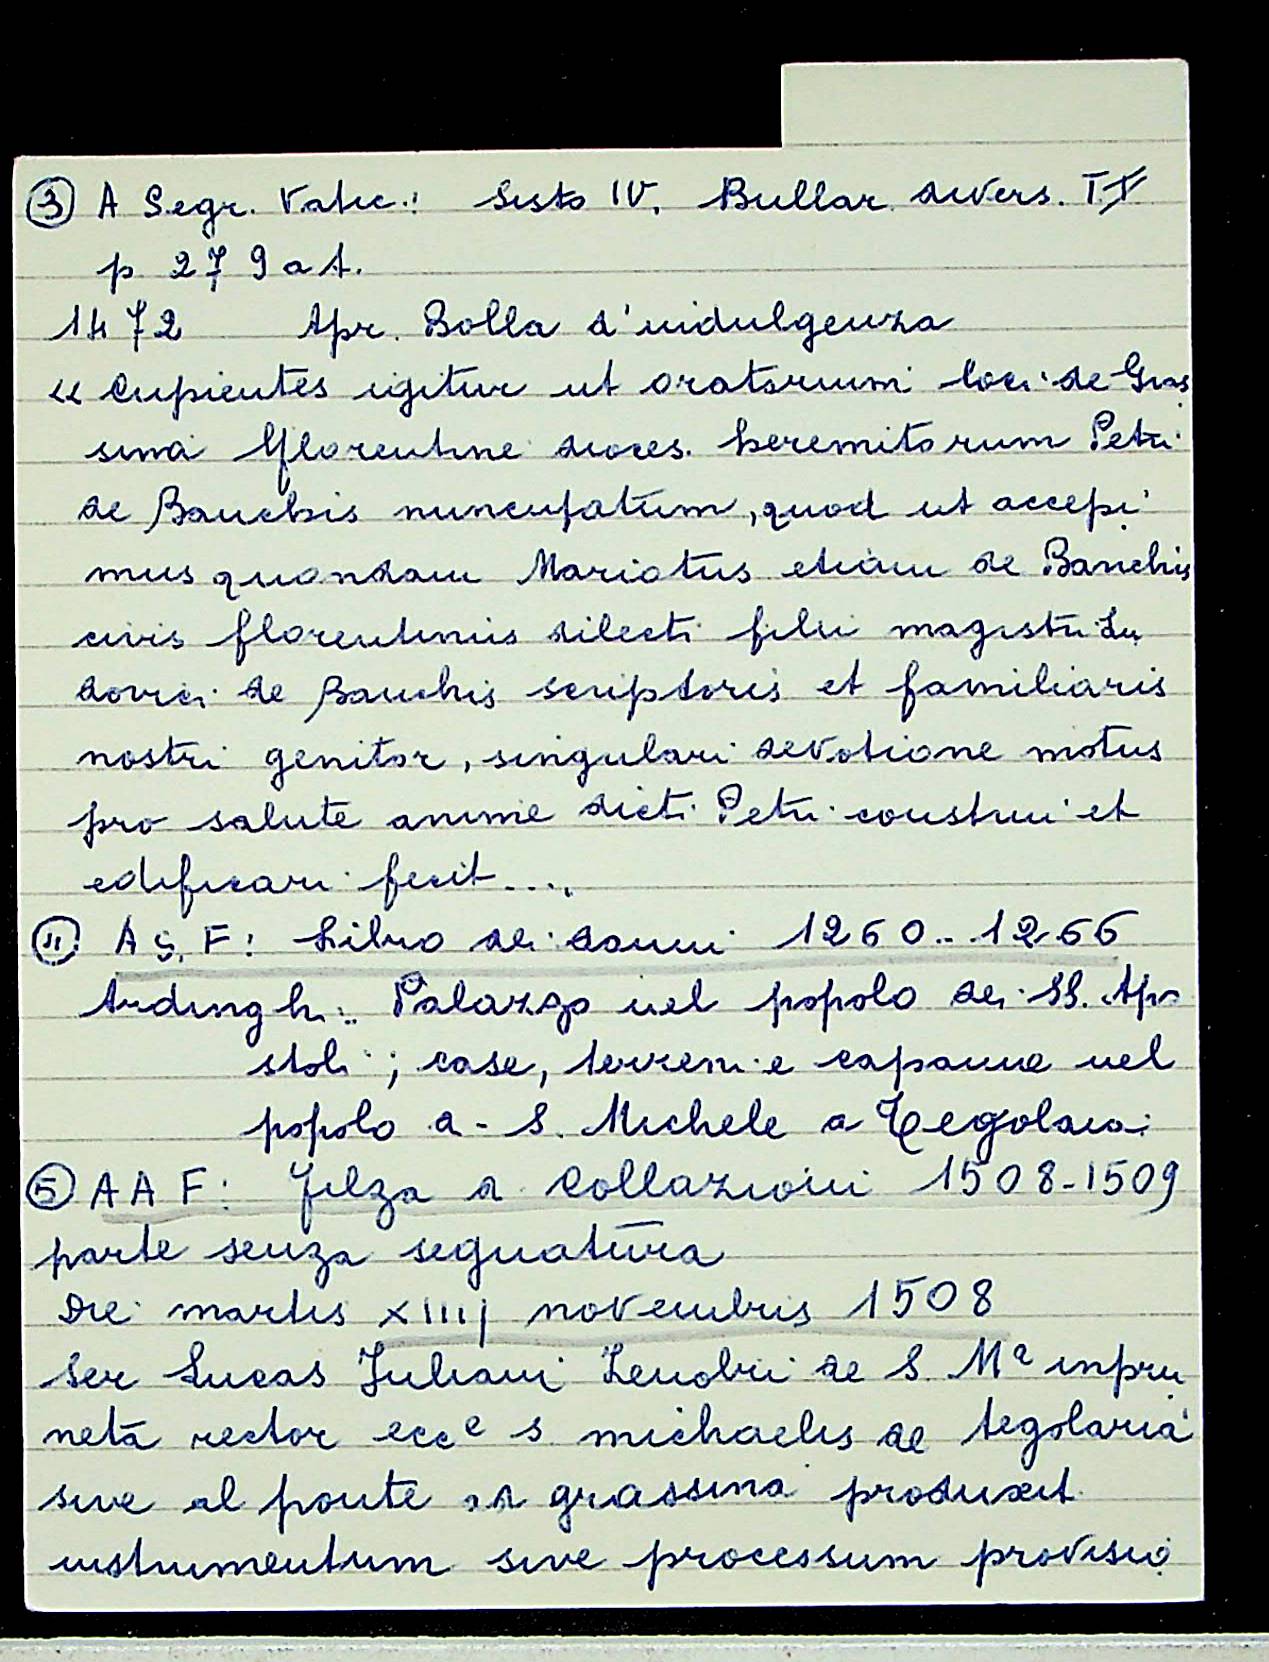 ③ A Segr. Vatic.: Sisto IV. Bullar divers. T.I.
p 279 a t.
1472 Apr. Bolla d'indulgenza
« Cupientes igitur ut oratorium loci de Gras
sina Florentine dioces. heremitorum Petri
de Banchis nuncupatum, quod ut accepi
mus quondam Mariotus etiam de Banchis
civis florentinus dilecti filii magistri Lu
dovici de Banchis scriptoris et familiaris
nostri genitor, singulari devotione motus
pro salute anime dicti Petri construi et
edificari fecit....
④ A S. F: Libro dei danni 1260..1266
Ardinghi.. Palazzo nel popolo dei SS. Apo
stoli; case, terreni e capanne nel
popolo a - S. Michele a Tegolaia:
⑤ A A F: Filza di Collazioni 1508-1509
parte senza segnatura
Die martis XIIIJ novembris 1508
Ser Lucas Juliani Zenobii de S. Mª inpru
neta rector ecce s michaelis de tegolaria
sive al ponte di grassina produxit
instrumentum sive processum provisio